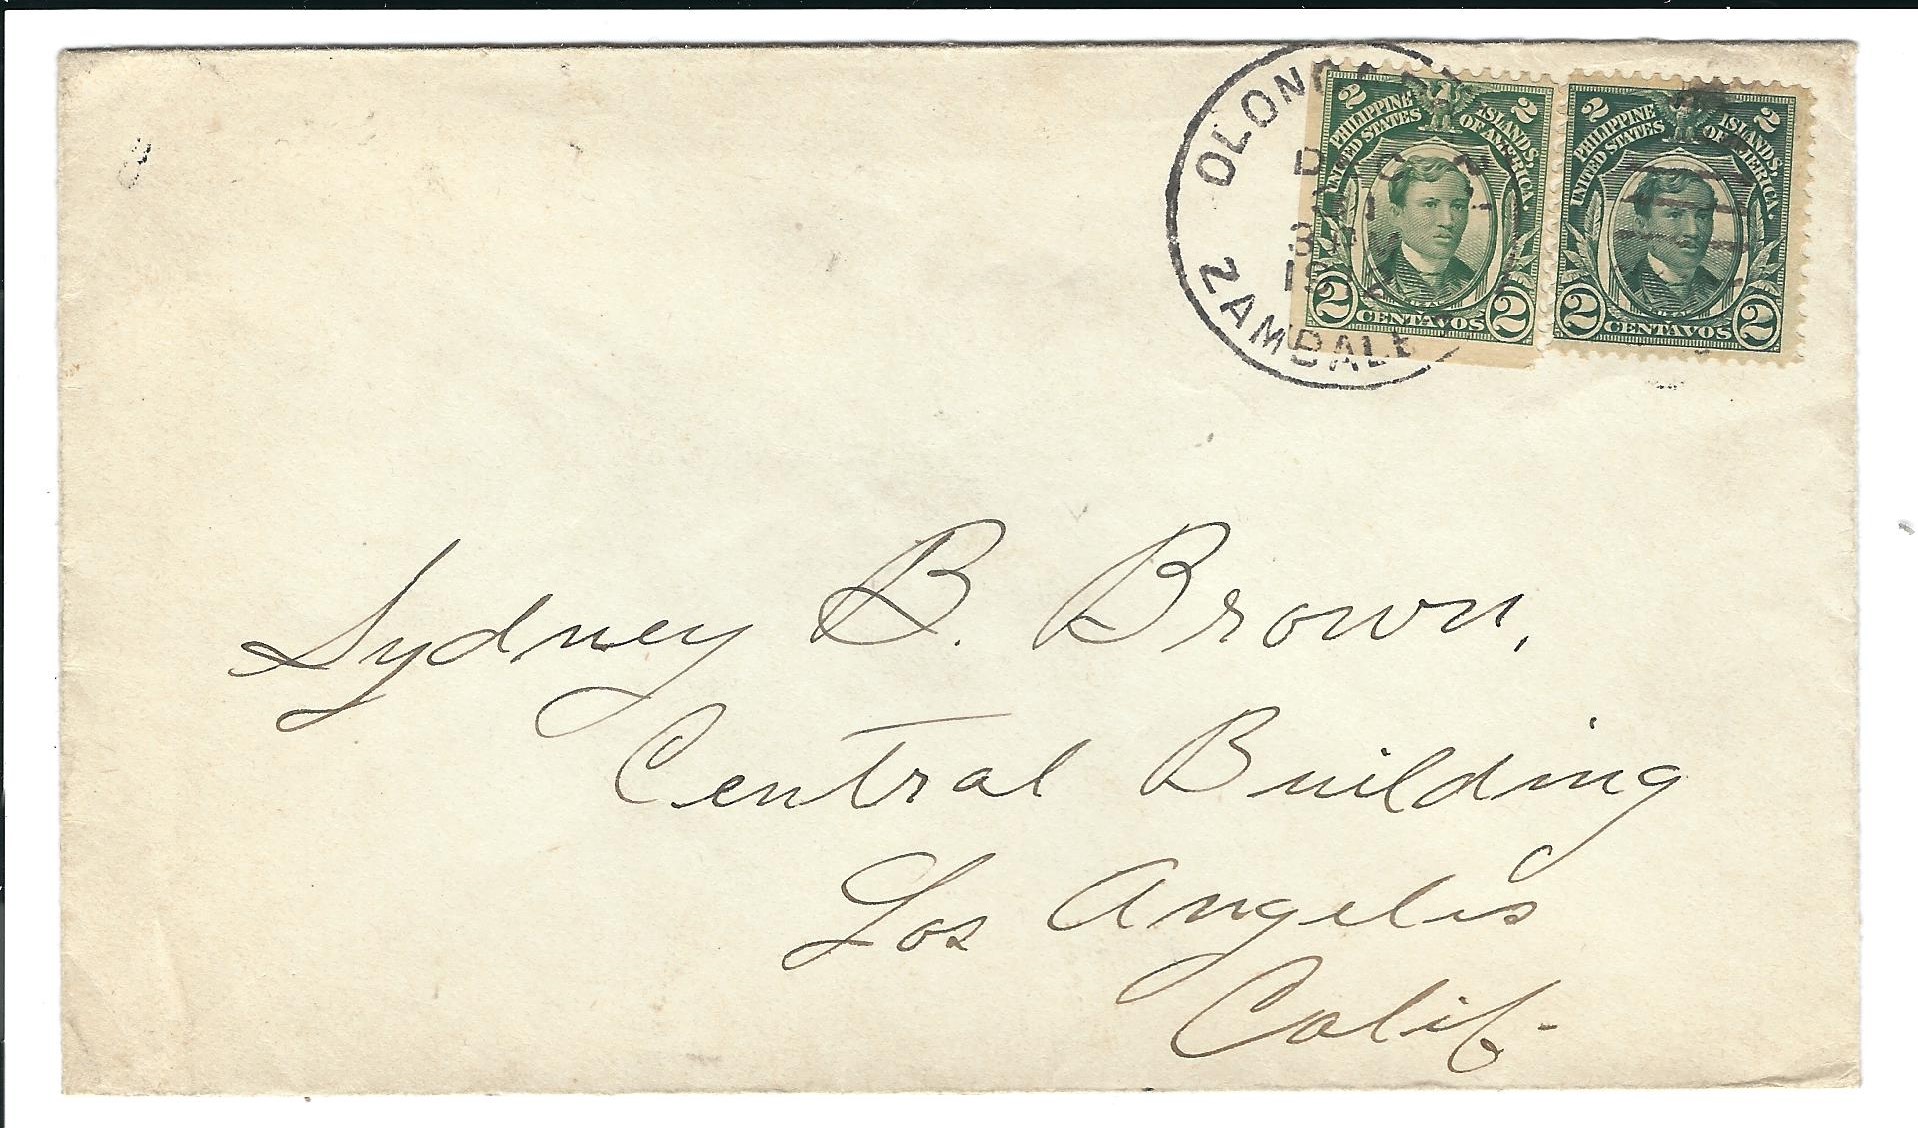 OLONGAPO
ZAMBALES
DEC
2 PHILIPPINE ISLANDS, 2
UNITED STATES OF AMERICA.
2 CENTAVOS 2
2 PHILIPPINE ISLANDS, 2
UNITED STATES OF AMERICA.
2 CENTAVOS 2
Sydney B. Brown,
Central Building
Los Angelis
Calif-